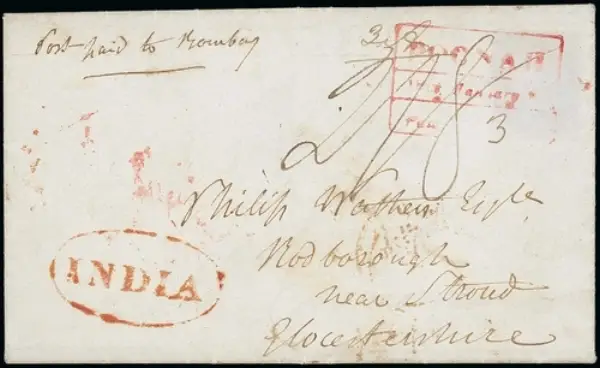 Post paid to Bombay
January
3
Philip Wathen Esqre
Rodborough
near Stroud
Glocestershire
INDIA